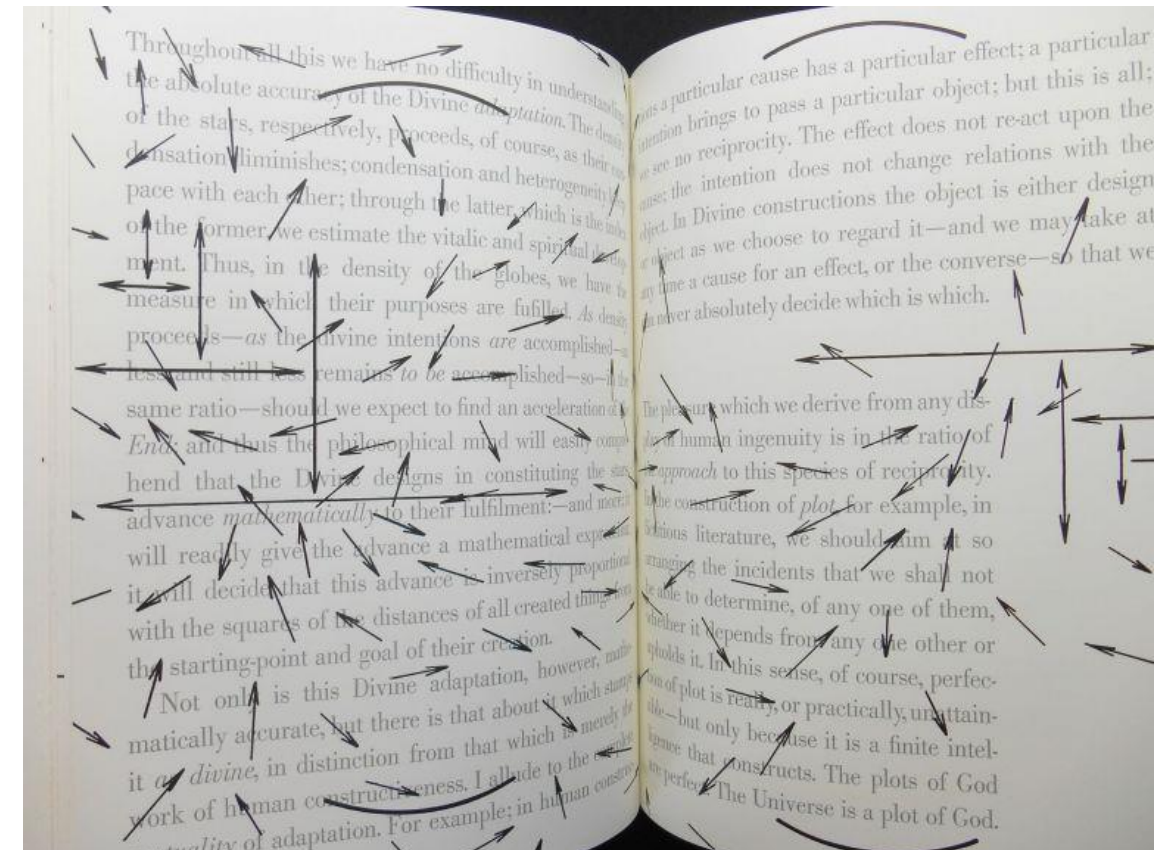 Throughout all this we have no difficulty in understanding
the absolute accuracy of the Divine adaptation. The density
of the stars, respectively, proceeds, of course, as their
densation diminishes; condensation and heterogeneity keep
pace with each other; through the latter, which is the index
of the former, we estimate the vitalic and spiritual develop-
ment. Thus, in the density of the globes, we have the
measure in which their purposes are fufilled. As density
proceeds—as the divine intentions are accomplished—as
less and still less remains to be accomplished—so—in the
same ratio—should we expect to find an acceleration of the
End: and thus the philosophical mind will easily
hend that the Divine designs in constituting the stars
advance mathematically to their fulfilment:—and more; it
will readily give the advance a mathematical
it will decide that this advance is inversely proportional
with the squares of the distances of all created things from
the starting-point and goal of their creation.
Not only is this Divine adaptation, however,
matically accurate, but there is that about it which stamps
it as divine, in distinction from that which is merely the
work of human constructiveness. I allude to the complete
mutuality of adaptation. For example; in human
a particular cause has a particular effect; a particular
intention brings to pass a particular object; but this is all;
we see no reciprocity. The effect does not re-act upon the
cause; the intention does not change relations with the
object. In Divine constructions the object is either design
or object as we choose to regard it—and we may take at
any time a cause for an effect, or the converse—so that we
can never absolutely decide which is which.
The pleasure which we derive from any dis-
play of human ingenuity is in the ratio of
the approach to this species of reciprocity.
In the construction of plot, for example, in
fictitious literature, we should aim at so
arranging the incidents that we shall not
be able to determine, of any one of them,
whether it depends from any one other or
upholds it. In this sense, of course, perfec-
tion of plot is really, or practically, unattain-
able—but only because it is a finite intel-
ligence that constructs. The plots of God
are perfect. The Universe is a plot of God.